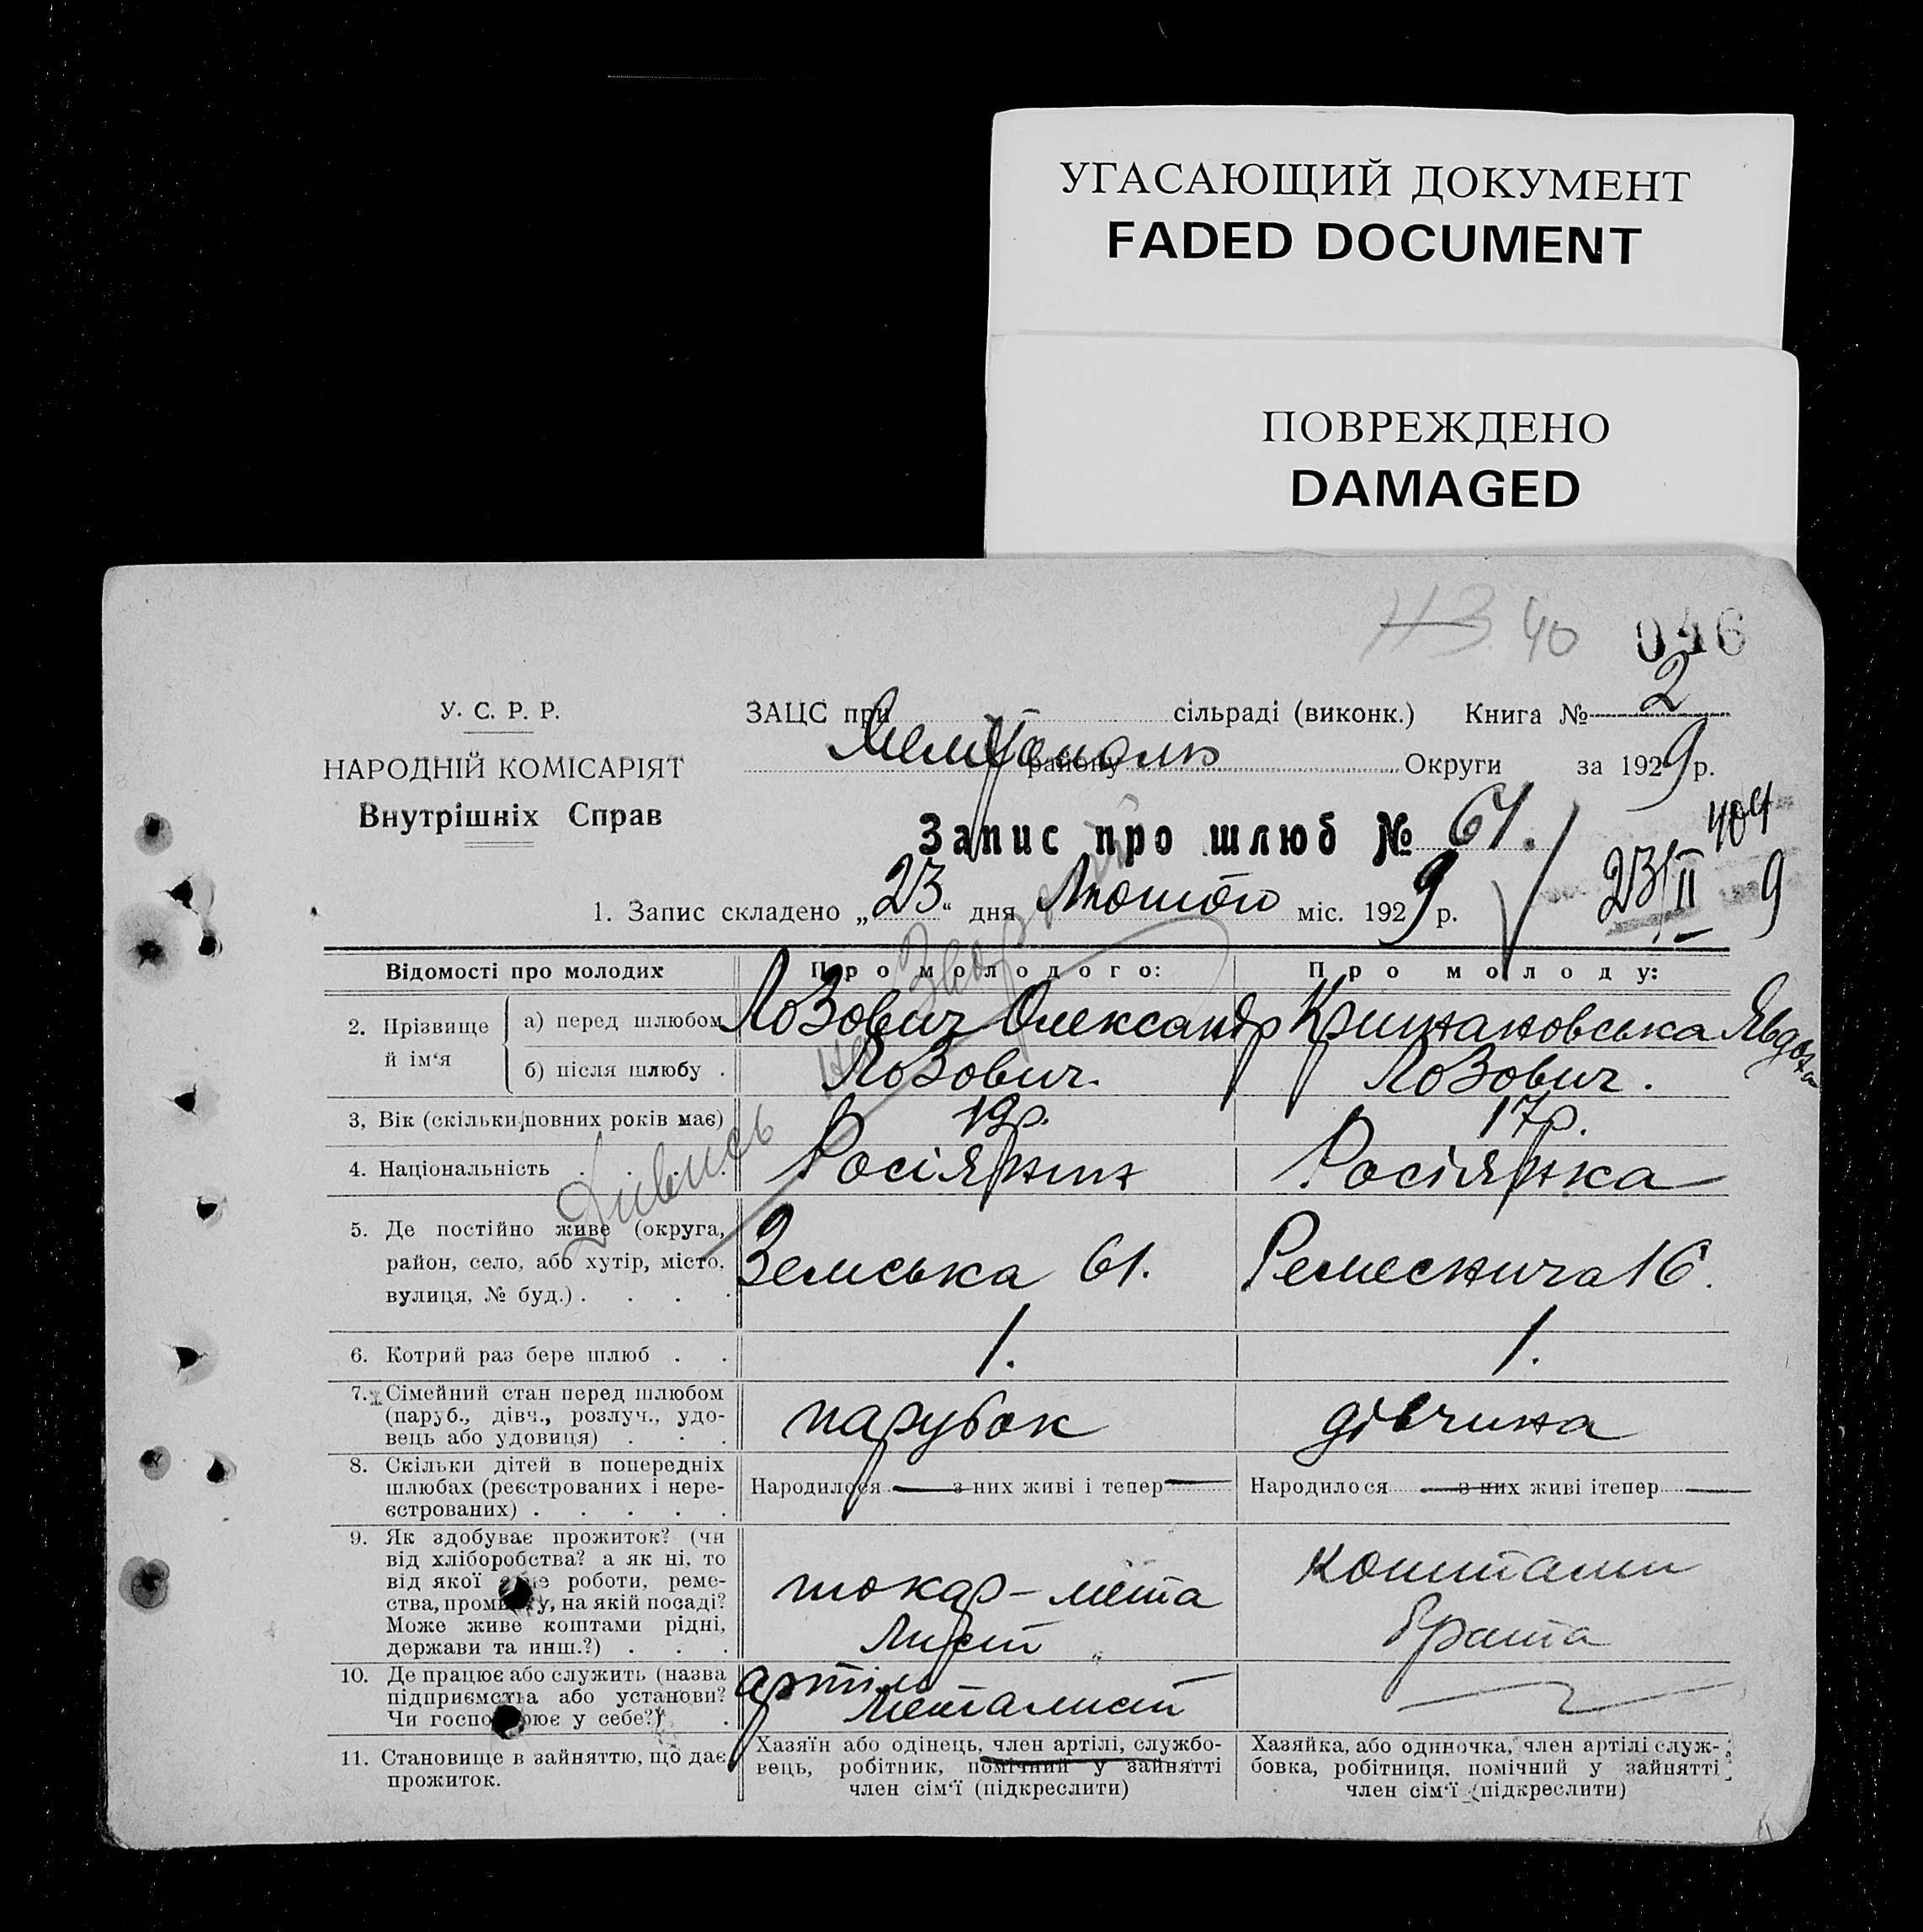 УГАСАЮЩИЙ ДОКУМЕНТ
FADED DOCUMENT
ПОВРЕЖДЕНО
DAMAGED
113. 40 046
У. С. Р. Р.
НАРОДНІЙ КОМІСАРІЯТ
Внутрішніх Справ
ЗАЦС при сільраді (виконк.) Книга № 2
Мелітополь району Округи за 1929 р.
Запис про шлюб № 61.
404
23/II 9
1. Запис складено „23“ дня Лютого міс. 1929 р.
Дивись на звороті
Відомості про молодих Про молодого: Про молоду:
2. Прізвище й ім‘я
а) перед шлюбом Лозович Олександр Крижановська Явдоха
б) після шлюбу . Лозович. Лозович.
3, Вік (скільки повних років має) 19р. 17р.
4. Національність . . . . Росіянин Росіянка
5. Де постійно живе (округа,
район, село, або хутір, місто,
вулиця, № буд.) . . . .
Земська 61. 16.
6. Котрий раз бере шлюб . . 1. 1.
7. Сімейний стан перед шлюбом
(паруб., дівч., розлуч., удо-
вець або удовиця) . . .
парубок дівчина
8. Скільки дітей в попередніх
шлюбах (реєстрованих і нере-
єстрованих) . . . . .
Народилося — з них живі і тепер — Народилося — з них живі ітепер —
9. Як здобуває прожиток? (чи
від хліборобства? а як ні, то
від якої роботи, реме-
ства, промислу, на якій посаді?
Може живе коштами рідні,
держави та инш.?) . . .
токар – мета
лист
коштами
брата
10. Де працює або служить (назва
підприємства або установи?
Чи господарює у себе?) .
артіль
Металист
11. Становище в зайняттю, що дає
прожиток.
Хазяїн або одінець, член артілі, службо-
вець, робітник, помічний у зайнятті
член сім‘ї (підкреслити)
Хазяйка, або одиночка, член артілі служ-
бовка, робітниця, помічний у зайнятті
член сім‘ї (підкреслити)